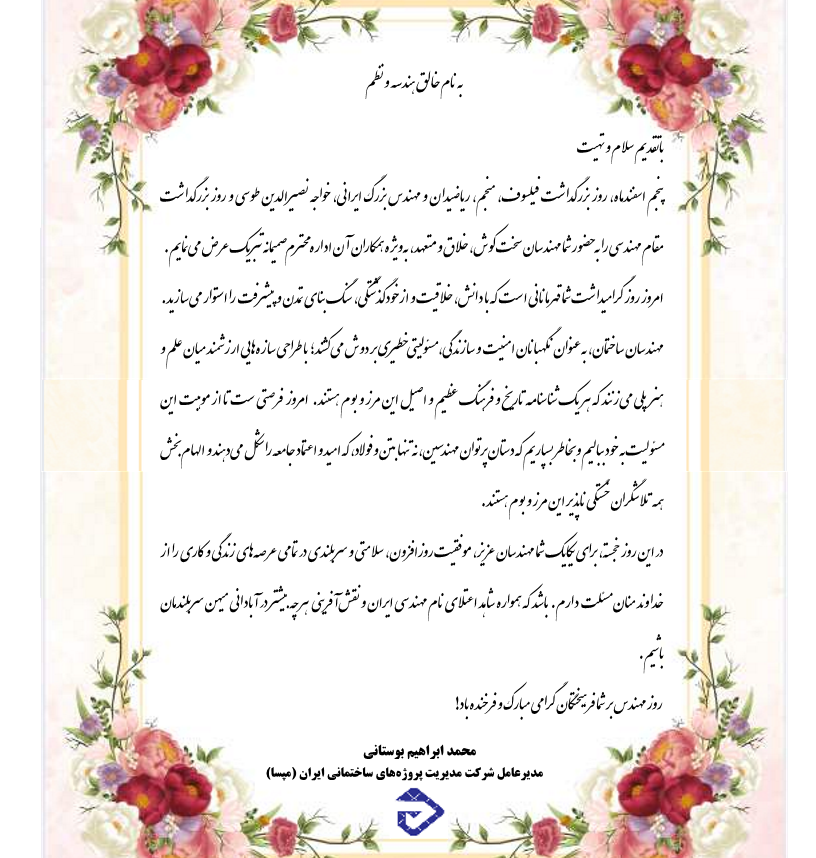 به نام خالق هندسه و نظم
باتقدیم سلام و تهیت
پنجم اسفندماه، روز بزرگداشت فیلسوف، منجم، ریاضیدان و مهندس بزرگ ایرانی، خواجه نصیرالدین طوسی و روز بزرگداشت
مقام مهندسی را به حضور شما مهندسان سخت‌کوش، خلاق و متعهد، به‌ویژه همکاران آن اداره محترم صمیمانه تبریک عرض می‌نمایم.
امروز روز گرامیداشت شما قهرمانانی است که با دانش، خلاقیت و از خودگذشتگی، سنگ بنای تمدن و پیشرفت را استوار می‌سازید.
مهندسان ساختمان، به عنوان نگهبانان امنیت و سازندگی، مسئولیتی خطیری بر دوش می‌کشند؛ با طراحی سازه‌هایی ارزشمند میان علم و
هنر پلی می‌زنند که هر یک شناسنامه تاریخ و فرهنگ عظیم و اصیل این مرز و بوم هستند. امروز فرصتی ست تا از موهبت این
مسئولیت به خود ببالیم و بخاطر بسپاریم که دستان پرتوان مهندسین، نه تنها بتن و فولاد، که امید و اعتماد جامعه را شکل می‌دهند و الهام بخش
همه تلاشگران خستگی ناپذیر این مرز و بوم هستند.
در این روز خجسته، برای یکایک شما مهندسان عزیز، موفقیت روزافزون، سلامتی و سربلندی در تمامی عرصه‌های زندگی و کاری را از
خداوند منان مسئلت دارم. باشد که همواره شاهد اعتلای نام مهندسی ایران و نقش‌آفرینی هرچه بیشتر در آبادانی میهن سربلندمان
باشیم.
روز مهندس بر شما فرهیختگان گرامی مبارک و فرخنده باد!
محمد ابراهیم بوستانی
مدیرعامل شرکت مدیریت پروژه‌های ساختمانی ایران (مپسا)